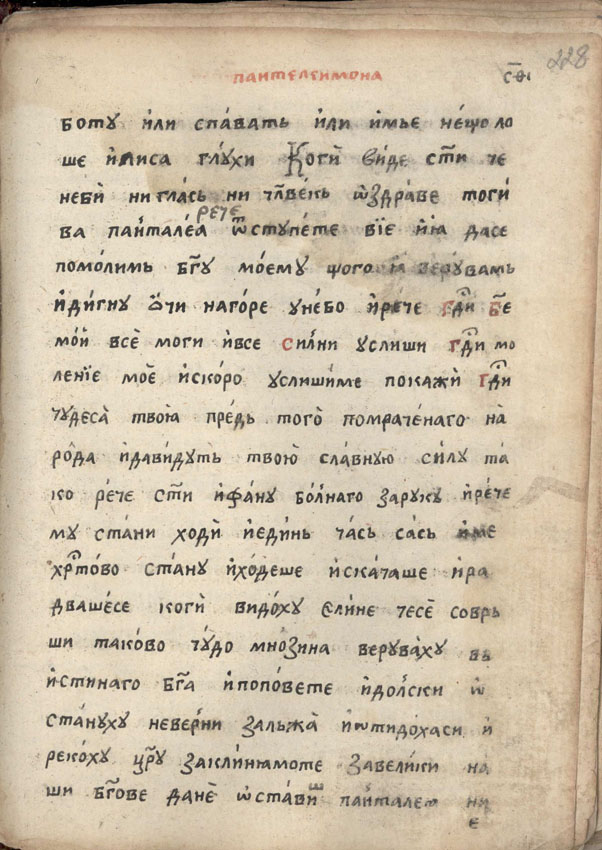 пантелеимона
с͠ѳі 228
боту и҆ли спавать и҆ли и҆мъе не́що ло
ше и҆лиса глꙋ́хи Коги̏ ви́де ст҃и че
неби̏ ни гла́сь ни чл҃ве́кь ѡ҆здра́ве тоги́
рече
ва пан҆тале́а ѿступе́те вїе и҆ꙗ҆ да се
помо́лимь бг҃у мо́ему що́го и҆ верувамь
и҆ди́гну ѻ҆чи наго́ре у не́бо и҆ре́че гд҃и бж҃е
мо́й все̏ моги и҆все си́лни услиши гд҃и мо
ле́нїе мое̏ и҆ско́ро услиши́ме покажи̏ гд҃и
чудеса̀ твоꙗ҆ пре́дь того̏ помраче́наго на̀
ро̑да и҆да ви́дуть твою̀ сла́вную си́лу та́
ко ре́че ст҃и и҆фа́ну бо́лнаго за руку и҆ре́че
му ста́ни ходи̏ и҆еди́нь ча́сь са́сь и҆ме
хр҃то́во ста́ну и҆хо́деше и҆ска́чаше и҆ра
два́шесе коги̏ видо́ху е́лине чесе̏ совръ
ши тако́во чу́до мно́зина верува́ху въ
и҆́стинаго бг҃а и҆попо́вете и҆до́лски ѡ҆
ста́нуху неве́рни за лъжа̀ и҆ѡтидо́хаси и҆
реко́ху цр҃у закли́нꙗмоте за вели́ки на
ши бг҃ове дане̏ ѡ҆ста́виш пан҆талеѡ ни
е